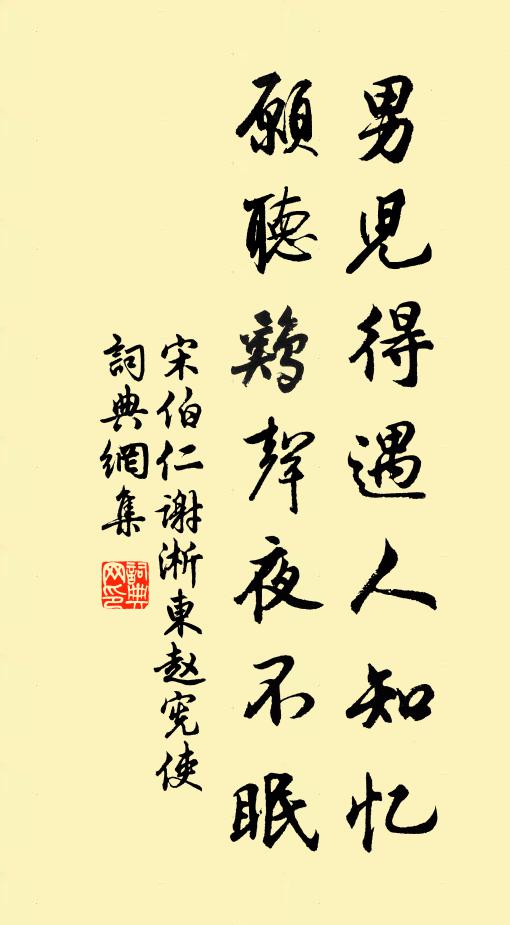 男児得遇人知忆
願聽鷄聲夜不眠
宋伯仁谢淅東赵宪使
詞典網集
詞典
网印